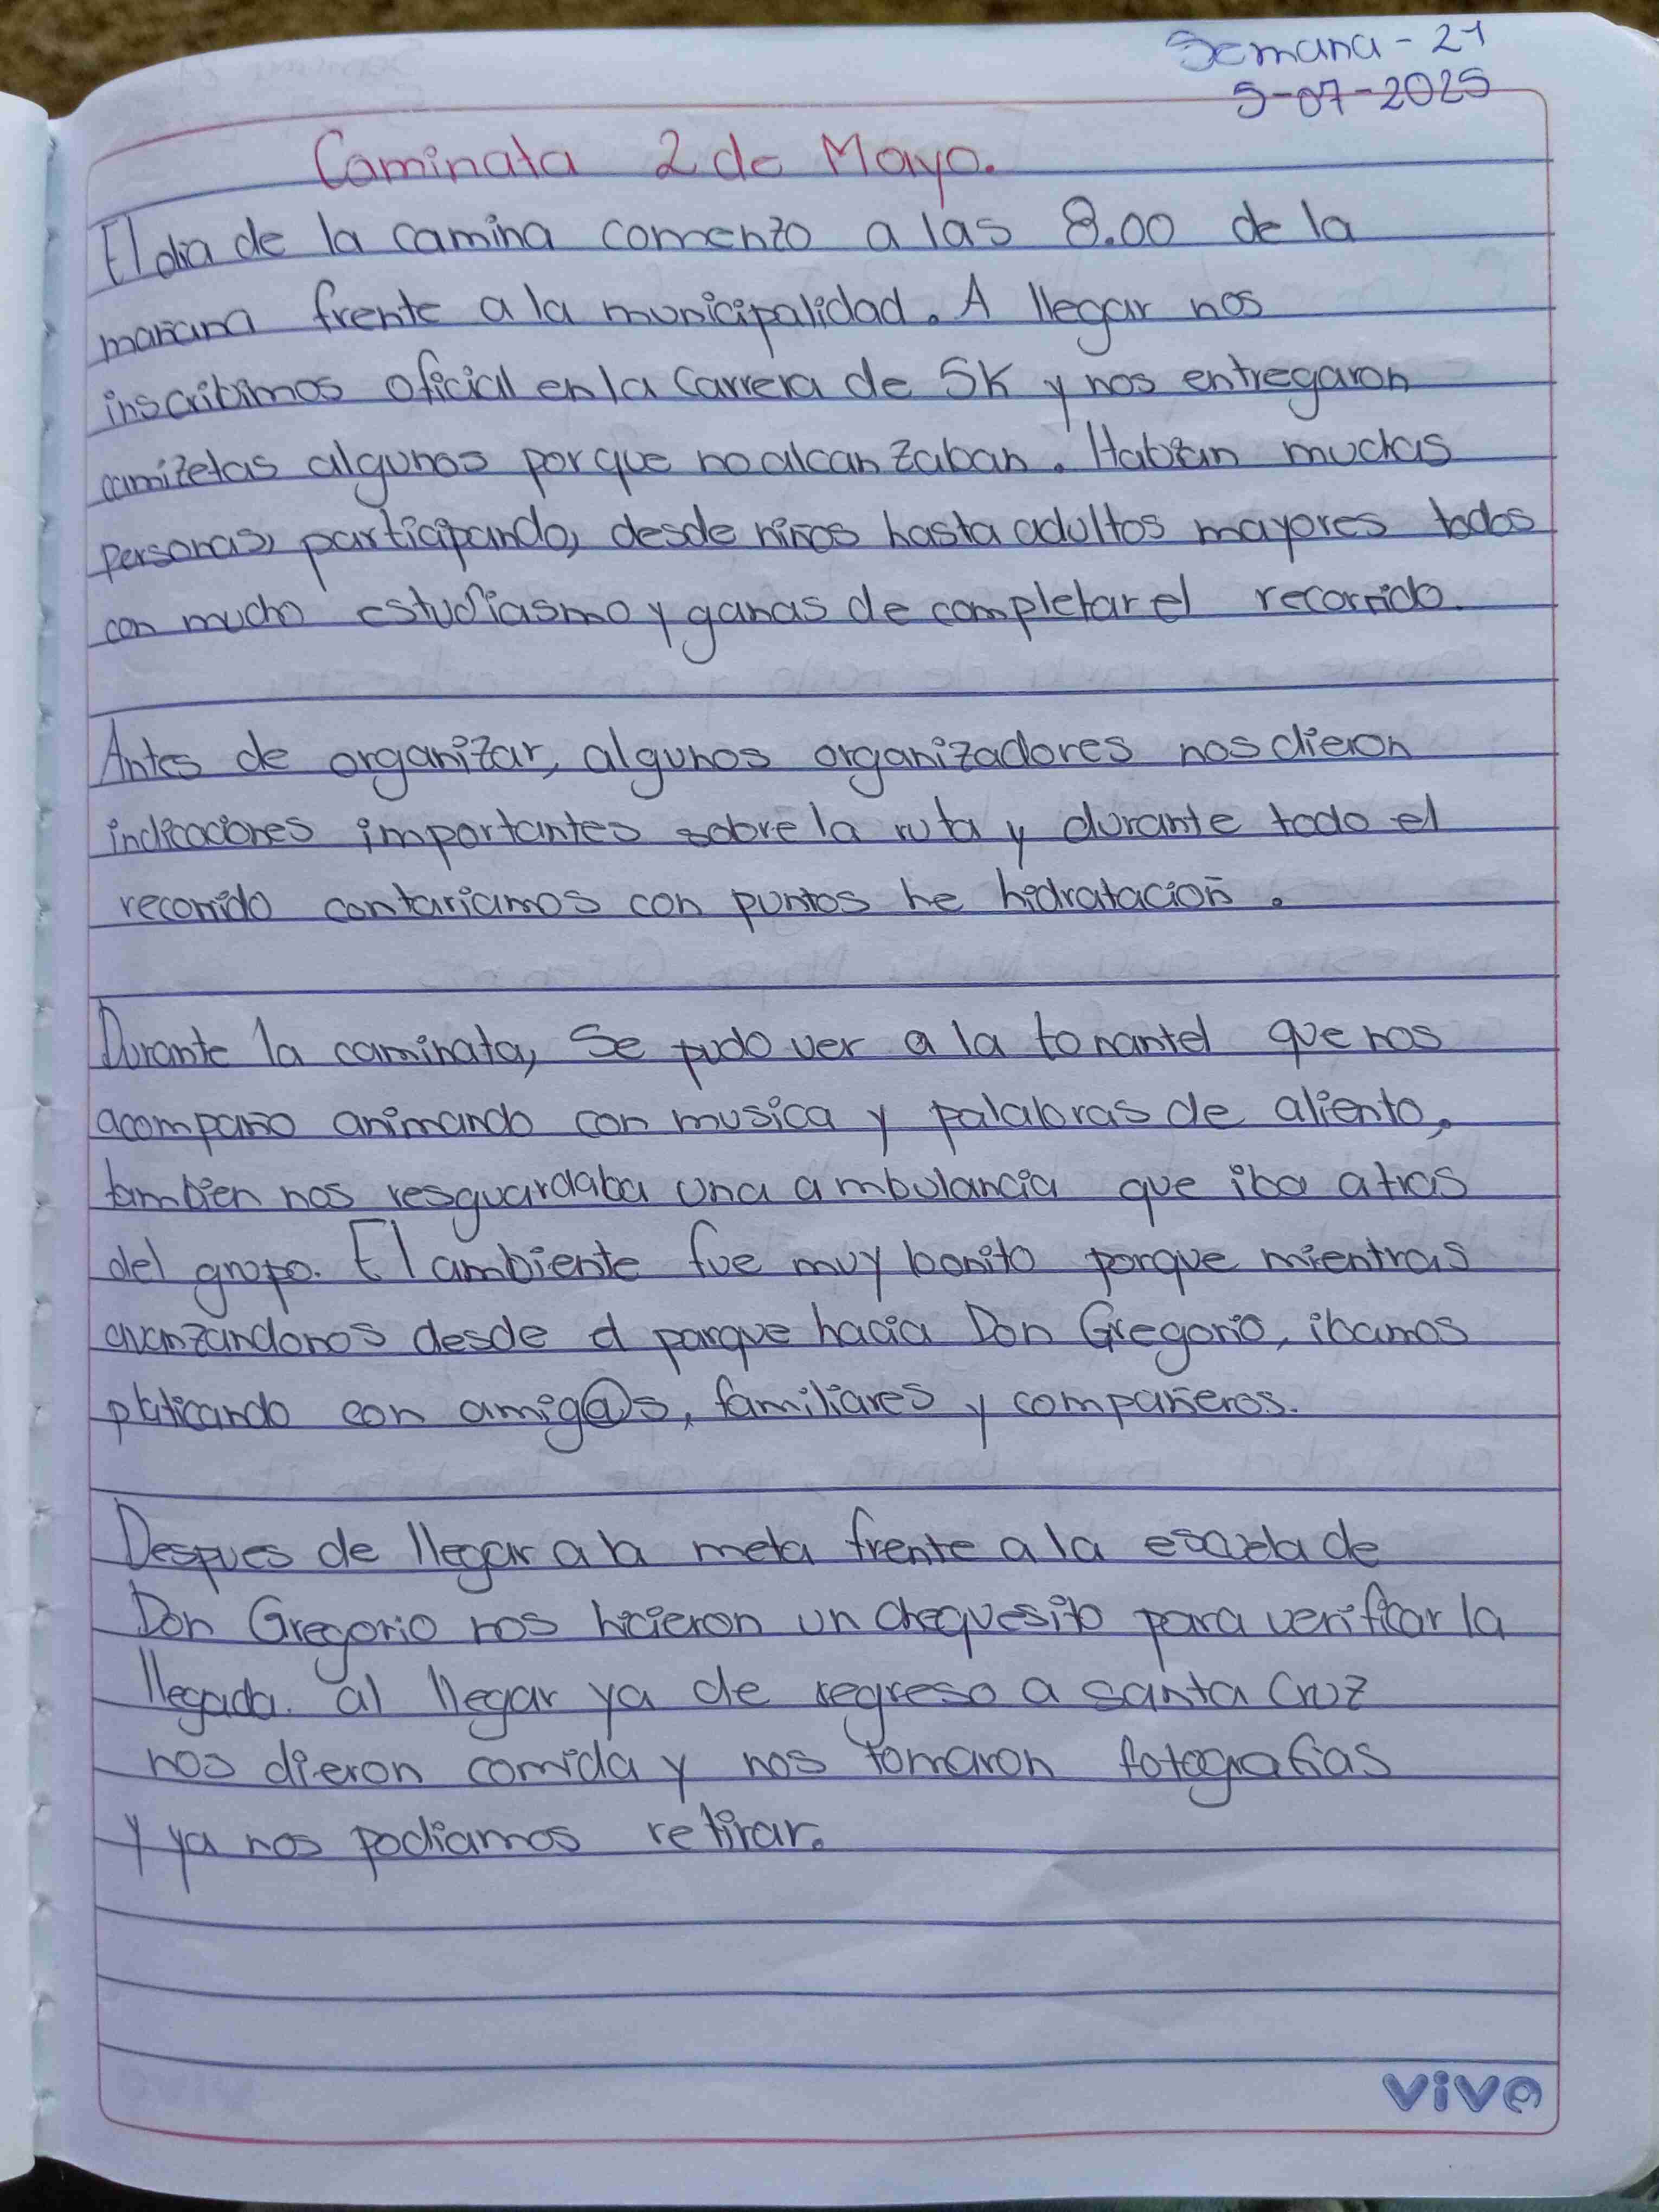 Semana - 21
5-07-2025
Caminata 2 de Mayo.
El dia de la camina comenzo a las 8.00 de la
mañana frente a la municipalidad. A llegar nos
inscribimos oficial en la Carrera de 5K y nos entregaron
camizetas algunos porque no alcanzaban. Habian muchas
personas, participando, desde niños hasta adultos mayores todos
con mucho estudiasmo y ganas de completar el recorrido.
Antes de organizar, algunos organizadores nos dieron
indicaciones importantes sobre la ruta y durante todo el
recorrido contariamos con puntos he hidratación.
Durante la caminata, Se pudo ver a la tonantel que nos
acompaño animando con musica y palabras de aliento,
tambien nos resguardaba una ambulancia que iba atras
del grupo. El ambiente fue muy bonito porque mientras
avanzandonos desde el parque hacia Don Gregorio, ibamos
platicando con amig@s, familiares y compañeros.
Despues de llegar a la meta frente a la escuela de
Don Gregorio nos hicieron un chequesito para verificar la
llegada. al llegar ya de regreso a santa Cruz
nos dieron comida y nos tomaron fotografias
y ya nos podiamos retirar.
vivo